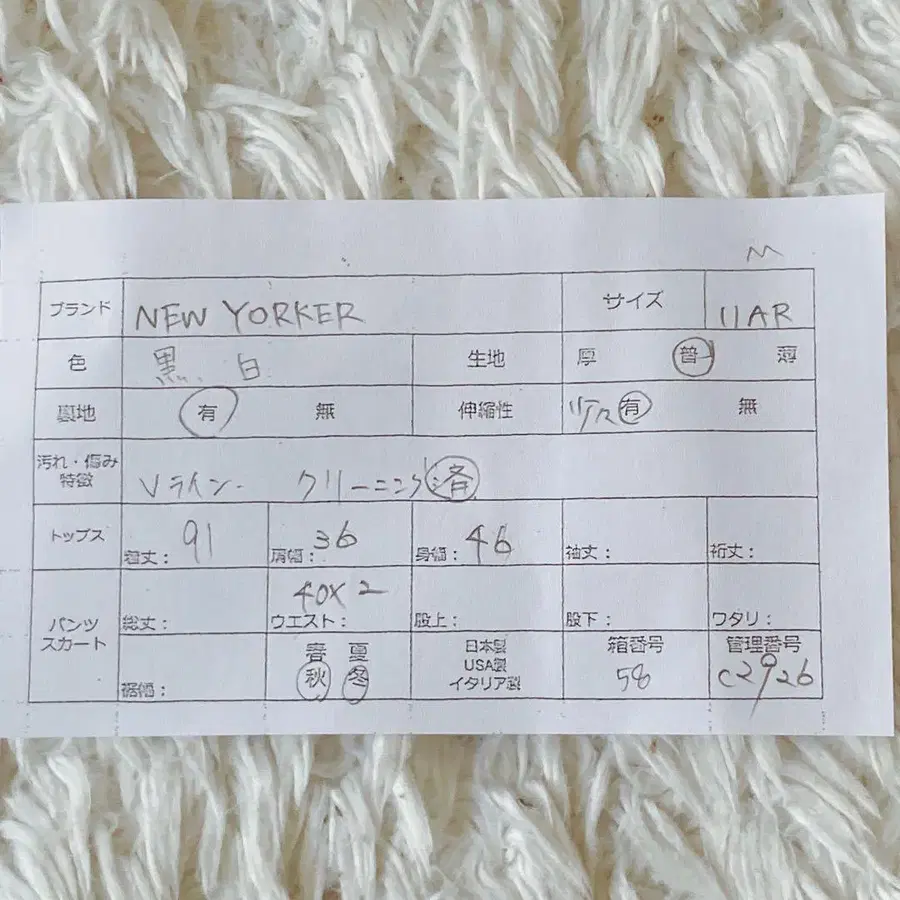 M
ブランド NEW YORKER サイズ 11AR
色 黒、白 生地 厚 普 薄
裏地 有 無 伸縮性 有 無
汚れ・傷み
特徴 Vライン クリーニング済
トップス 着丈: 91 肩幅: 36 身幅: 46 袖丈: 裄丈:
パンツ
スカート 総丈: ウエスト: 40×2 股上: 股下: ワタリ:
裾幅: 春 夏
秋 冬
日本製
USA製
イタリア製
箱番号
58
管理番号
C2926